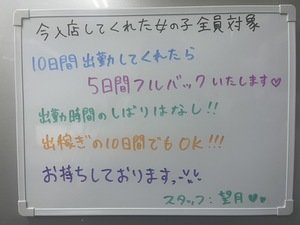 今入店してくれた女の子全員対象
10日間出勤してくれたら
5日間フルバックいたします♡
出勤時間のしばりはなし!!
出稼ぎの10日間でもOK!!!
お待ちしております
スタッフ:望月♥♥